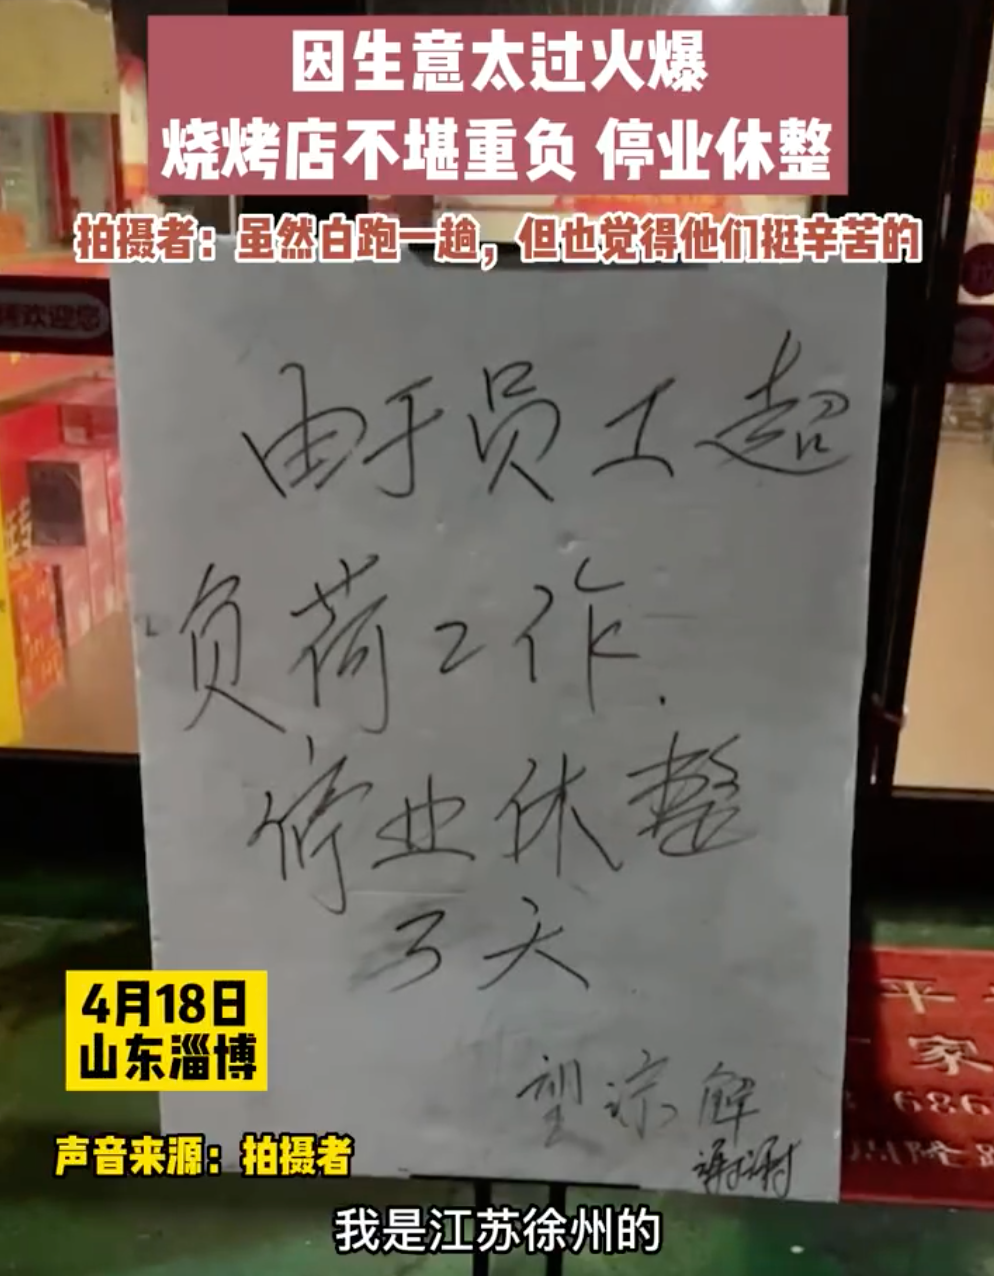 因生意太过火爆
烧烤店不堪重负 停业休整
拍摄者：虽然白跑一趟，但也觉得他们挺辛苦的
欢迎您
由于员工超
负荷工作.
停业休整
3天
望谅解
谢谢
4月18日
山东淄博
声音来源：拍摄者
平
家
686
我是江苏徐州的